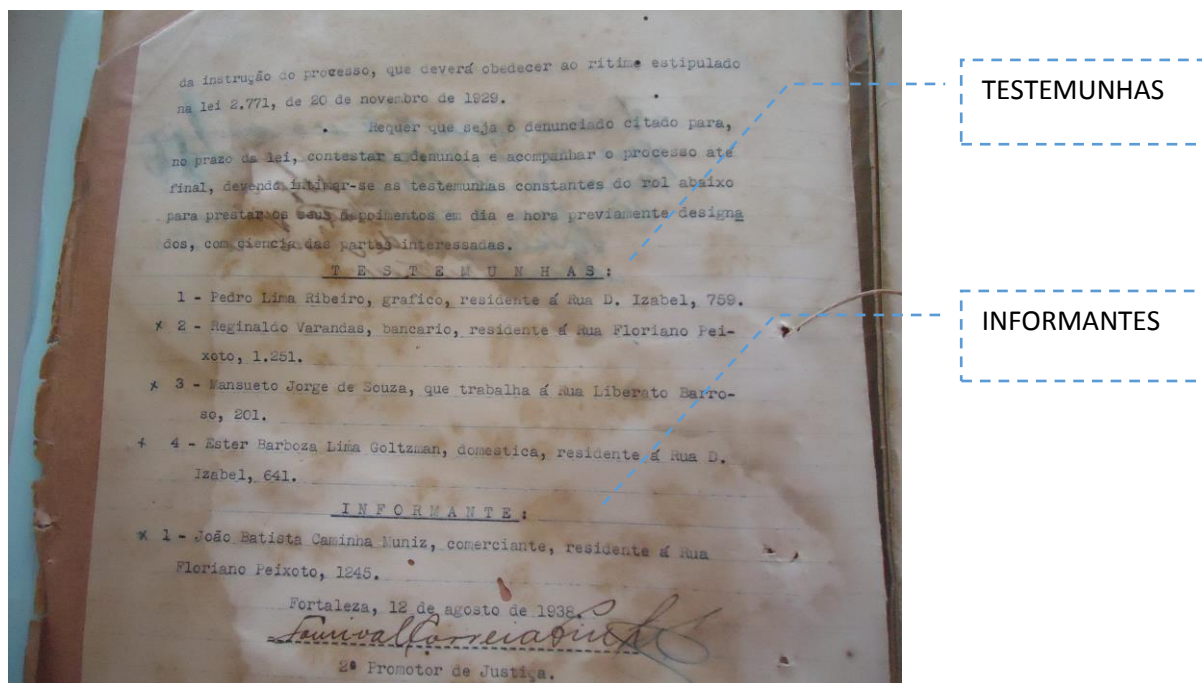 da instrução do processo, que deverá obedecer ao ritimo estipulado
na lei 2.771, de 20 de novembro de 1929.
Requer que seja o denunciado citado para,
no prazo da lei, contestar a denuncia e acompanhar o processo até
final, devendo intimar-se as testemunhas constantes do rol abaixo
para prestar os seus depoimentos em dia e hora previamente designa
dos, com ciencia das partes interessadas.
T E S T E M U N H A S :
1 - Pedro Lima Ribeiro, grafico, residente á Rua D. Izabel, 759.
x 2 - Reginaldo Varandas, bancario, residente á Rua Floriano Pei-
xoto, 1.251.
x 3 - Mansueto Jorge de Souza, que trabalha á Rua Liberato Barro-
so, 201.
x 4 - Ester Barboza Lima Goltzman, domestica, residente á Rua D.
Izabel, 641.
I N F O R M A N T E :
x 1 - João Batista Caminha Muniz, comerciante, residente á Rua
Floriano Peixoto, 1245.
Fortaleza, 12 de agosto de 1938.
Lourival Correia
2º Promotor de Justiça.
TESTEMUNHAS
INFORMANTES